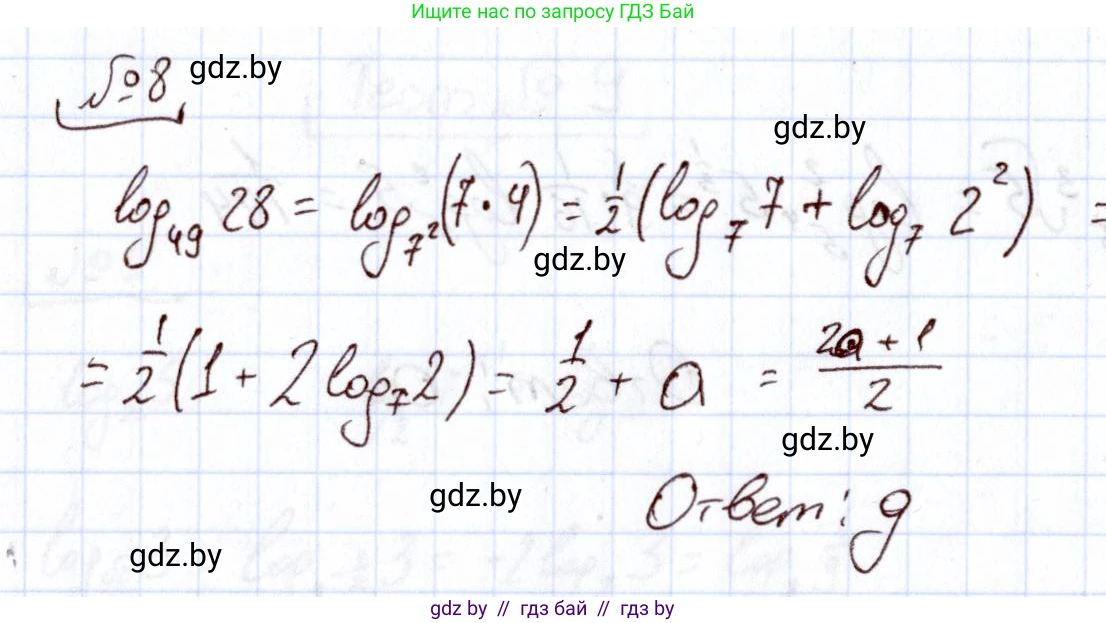 Ищите нас по запросу ГДЗ Бай
№8 gdz.by
gdz.by
log₄₉ 28 = log₇²(7·4) = 1/2 (log₇ 7 + log₇ 2²) =
gdz.by
= 1/2 (1 + 2 log₇ 2) = 1/2 + a = (2a + 1)/2
gdz.by
gdz.by
Ответ: g
gdz.by
gdz by // гдз бай // гдз by